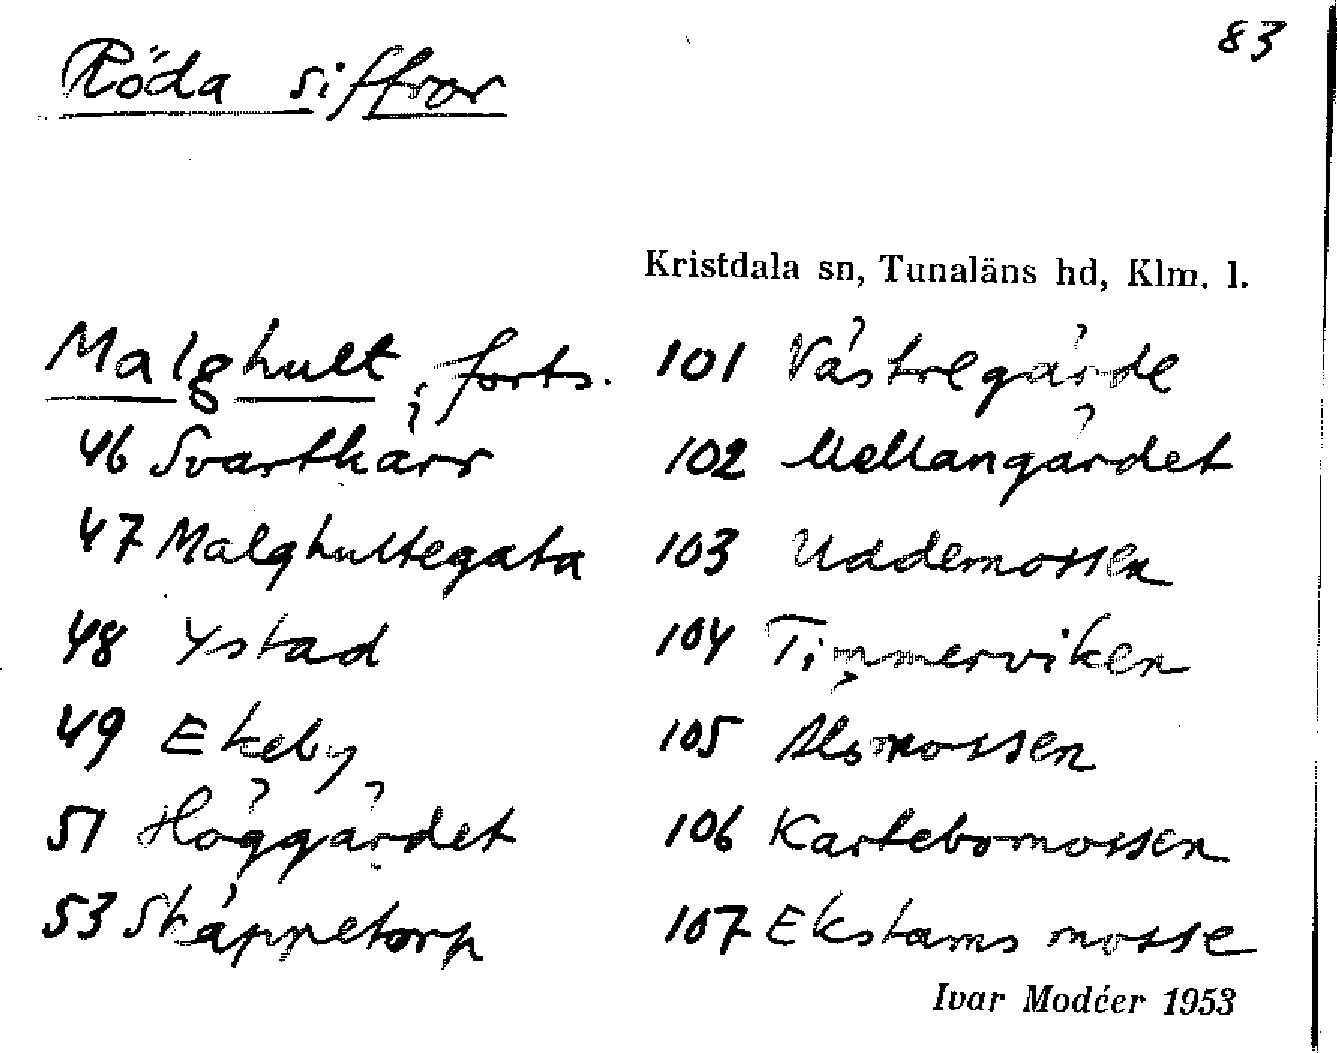 83
Röda siffror
Kristdala sn, Tunaläns hd, Klm. l.
Malghult, forts.
46 Svartkärr
47 Malghultegata
48 Ystad
49 Ekeby
51 Höggärdet
53 Skäppetorp
101 Västregärde
102 Mellangärdet
103 Uddemossen
104 Timmerviken
105 Alsmossen
106 Kartebomossen
107 Ekstams mosse
Ivar Modéer 1953